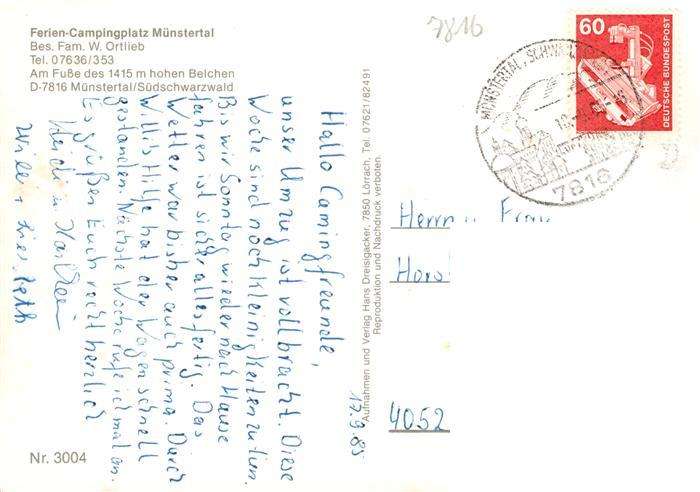 Ferien-Campingplatz Münstertal
Bes. Fam. W. Ortlieb
Tel. 07636/353
Am Fuße des 1415 m hohen Belchen
D-7816 Münstertal/Südschwarzwald
7816
60
DEUTSCHE BUNDESPOST
MÜNSTERTAL, SCHWARZWALD
7816
Hallo Camingfreunde,
unser Umzug ist vollbracht. Diese
Woche sind noch Kleinigkeiten zu tun.
Bis wir Sonntag wieder nach Hause
fahren ist sicher alles fertig. Das
Wetter war bisher auch prima. Durch
Willis Hilfe hat der Wagen schnell
gestanden. Nächste Woche rufe ich mal an.
Es grüßen Euch recht herzlich
Heidi u. Karlheinz
Willi + Lieseleth
17.9.85
Aufnahmen und Verlag Hans Dreisigacker, 7850 Lörrach, Tel. 07621/82491
Reproduktion und Nachdruck verboten.
Herrn u. Frau
Horst
4052
Nr. 3004